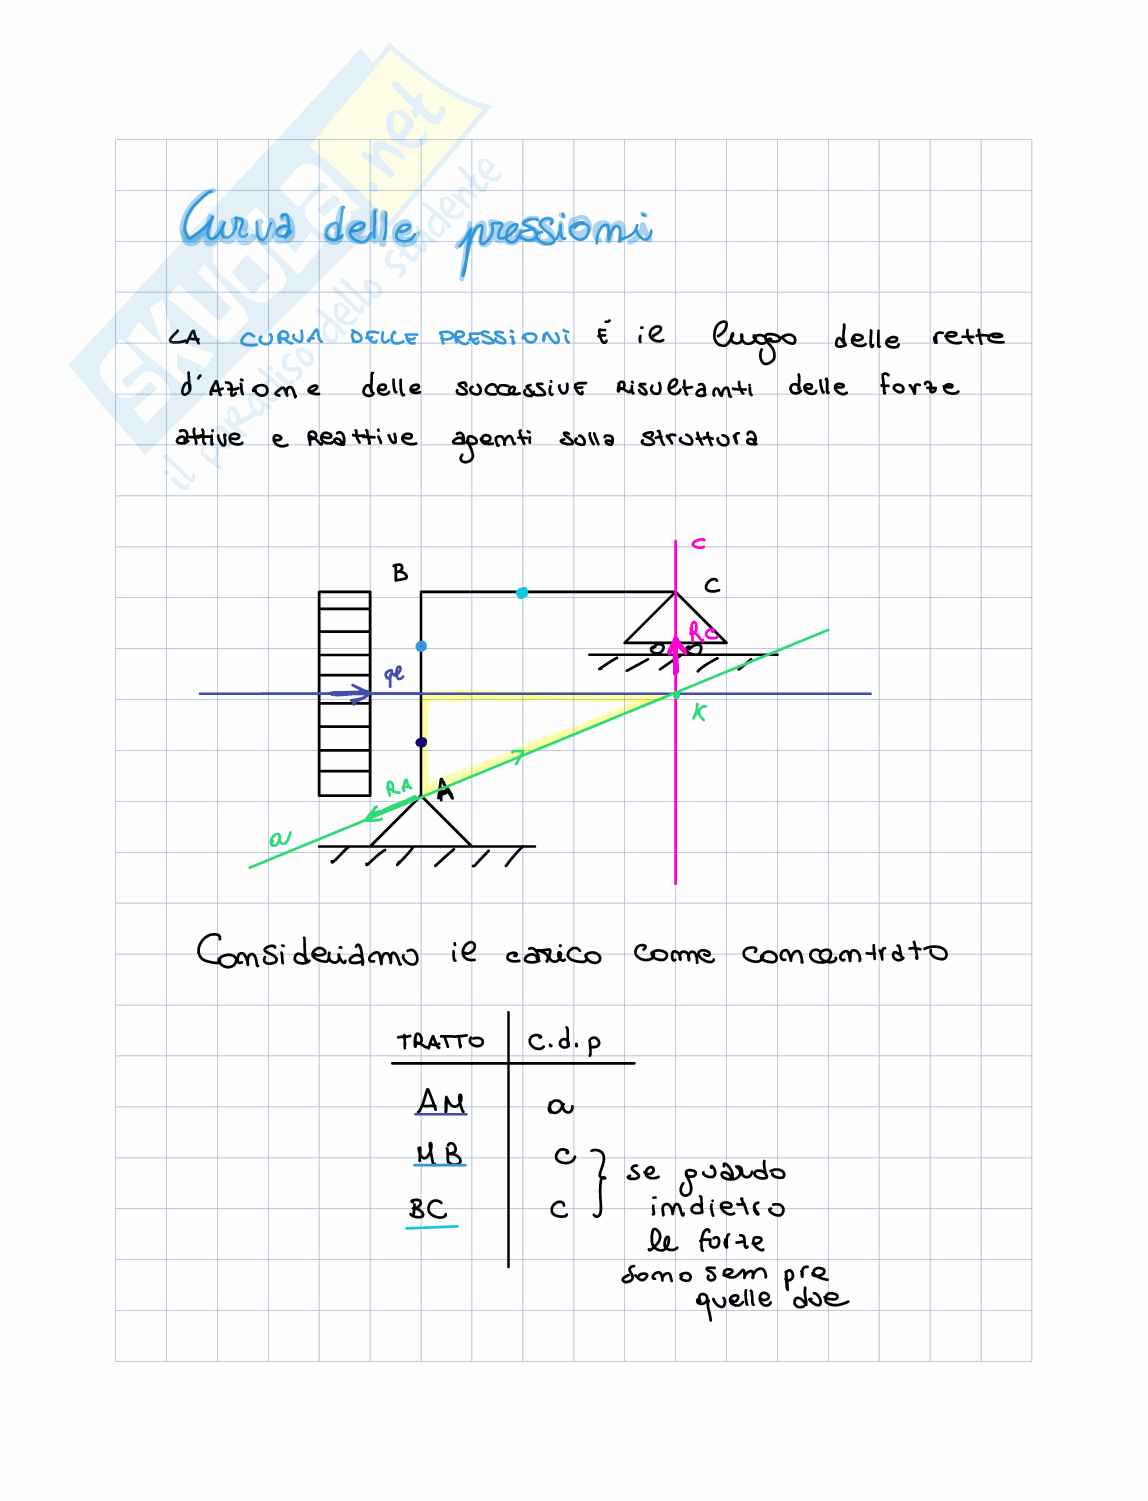 SKUOLA.net
il paradiso dello studente
Curva delle pressioni
LA CURVA DELLE PRESSIONI É il luogo delle rette
d'Azione delle successive Risultanti delle forze
attive e Reattive agenti sulla struttura
c
B
C
Rc
ql
K
RA
A
a
Consideriamo il carico come concentrato
TRATTO C.d.p
AM a
MB c
BC c
se guardo
indietro
le forze
sono sempre
quelle due